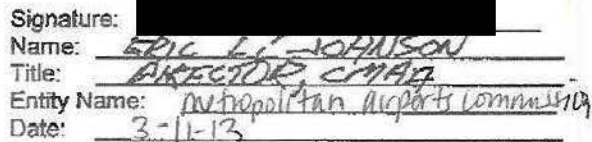 Signature:
Name: ERIC L. JOHNSON
Title: DIRECTOR
Entity Name: metropolitan airports commission
Date: 3-11-13